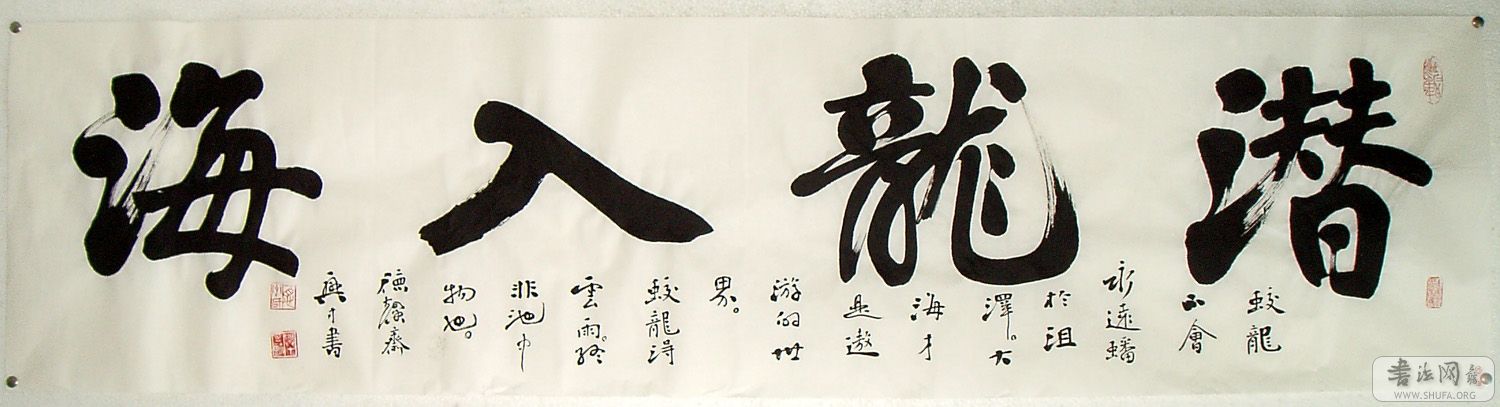 潜龍入海
蛟龍
不會
永遠蟠
於沮
澤。大
海才
是遨
游的世
界。
蛟龍得
雲雨。終
非池中
物也。
德馨齋
興才書
書法网
WWW.SHUFA.ORG